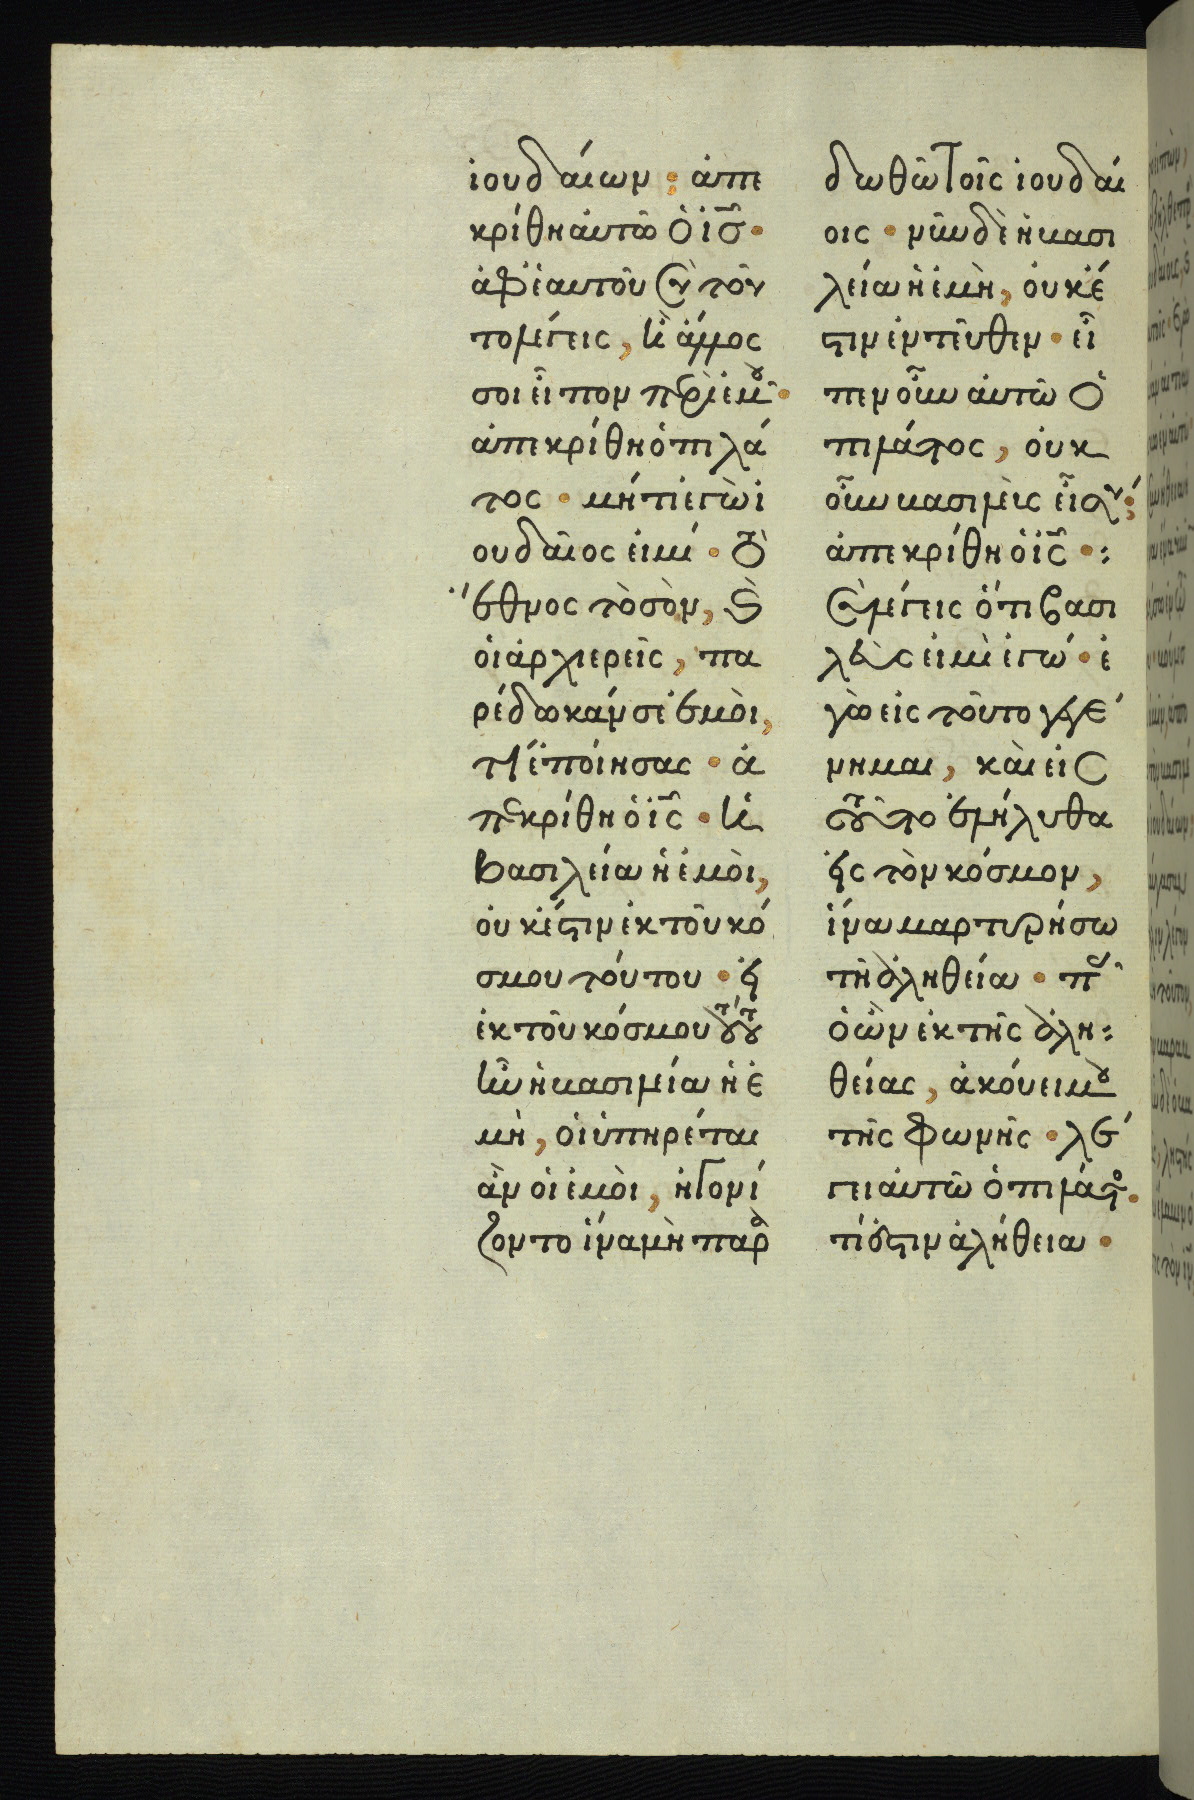 ἰουδαίων; ἀπε
κρίθη αὐτῶ ὁ ἰς̄·
ἀφ' ἑαυτοῦ σὺ τοῦ
το λέγεις, ἢ ἄλλος
σοι εἶπον περὶ ἐμοῦ·
ἀπεκρίθη ὁ πιλά
τος· μήτι ἐγὼ ἰ
ουδαῖος εἰμί· τὸ
ἔθνος τὸ σὸν, καὶ
οἱ ἀρχιερεῖς, πα
ρέδωκάν σε ἐμοὶ,
τί ἐποίησας· ἀ
πεκρίθη ὁ ἰς̄· ἡ
βασιλεία ἡ ἐμὸι,
οὐκ ἔστιν ἐκ τοῦ κό
σμου τούτου· εἰ
ἐκ τοῦ κόσμου τούτου
ἦν ἡ βασιλεία ἡ ἐ
μὴ, οἱ ὑπηρέται
ἂν οἱ ἐμοὶ, ἠγονί
ζοντο ἵνα μὴ παρα
δωθῶ τοῖς ἰουδαί
οις· νῦν δὲ ἡ βασι
λεία ἡ ἐμὴ, οὐκ ἔ
στιν ἐντεῦθεν· εἶ
πεν οὖν αὐτῶ ὁ
πιλάτος, οὐκ
οῦν βασιλεὺς εἶ σύ;
ἀπεκρίθη ὁ ἰς̄·:
σὺ λέγεις ὅτι βασι
λεὺς εἰμὶ ἐγώ· ἐ
γὼ εἰς τοῦτο γεγέ
νημαι, καὶ εἰς
τοῦτο ἐλήλυθα
εἰς τὸν κόσμον,
ἵνα μαρτυρήσω
τῆ ἀληθεία· πᾶς
ὁ ὢν ἐκ τῆς ἀλη:
θείας, ἀκούει μου
τῆς φωνῆς· λέ
γει αὐτῶ ὁ πιλάτος·
τί ἐστιν ἀλήθεια·